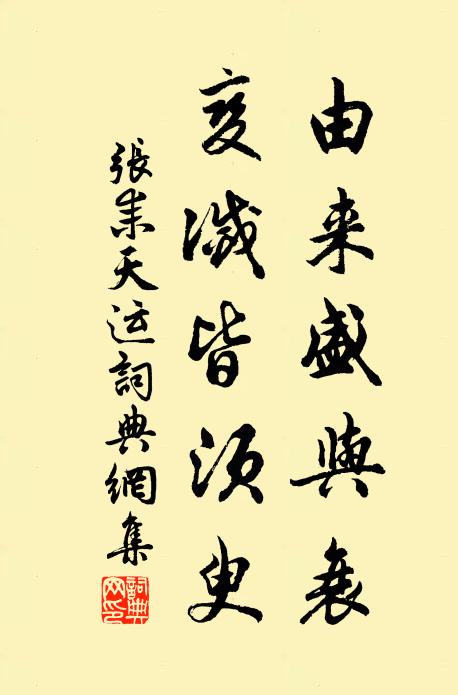 由来盛與衰
变滅皆須臾
張耒天运詞典網集
詞典网印